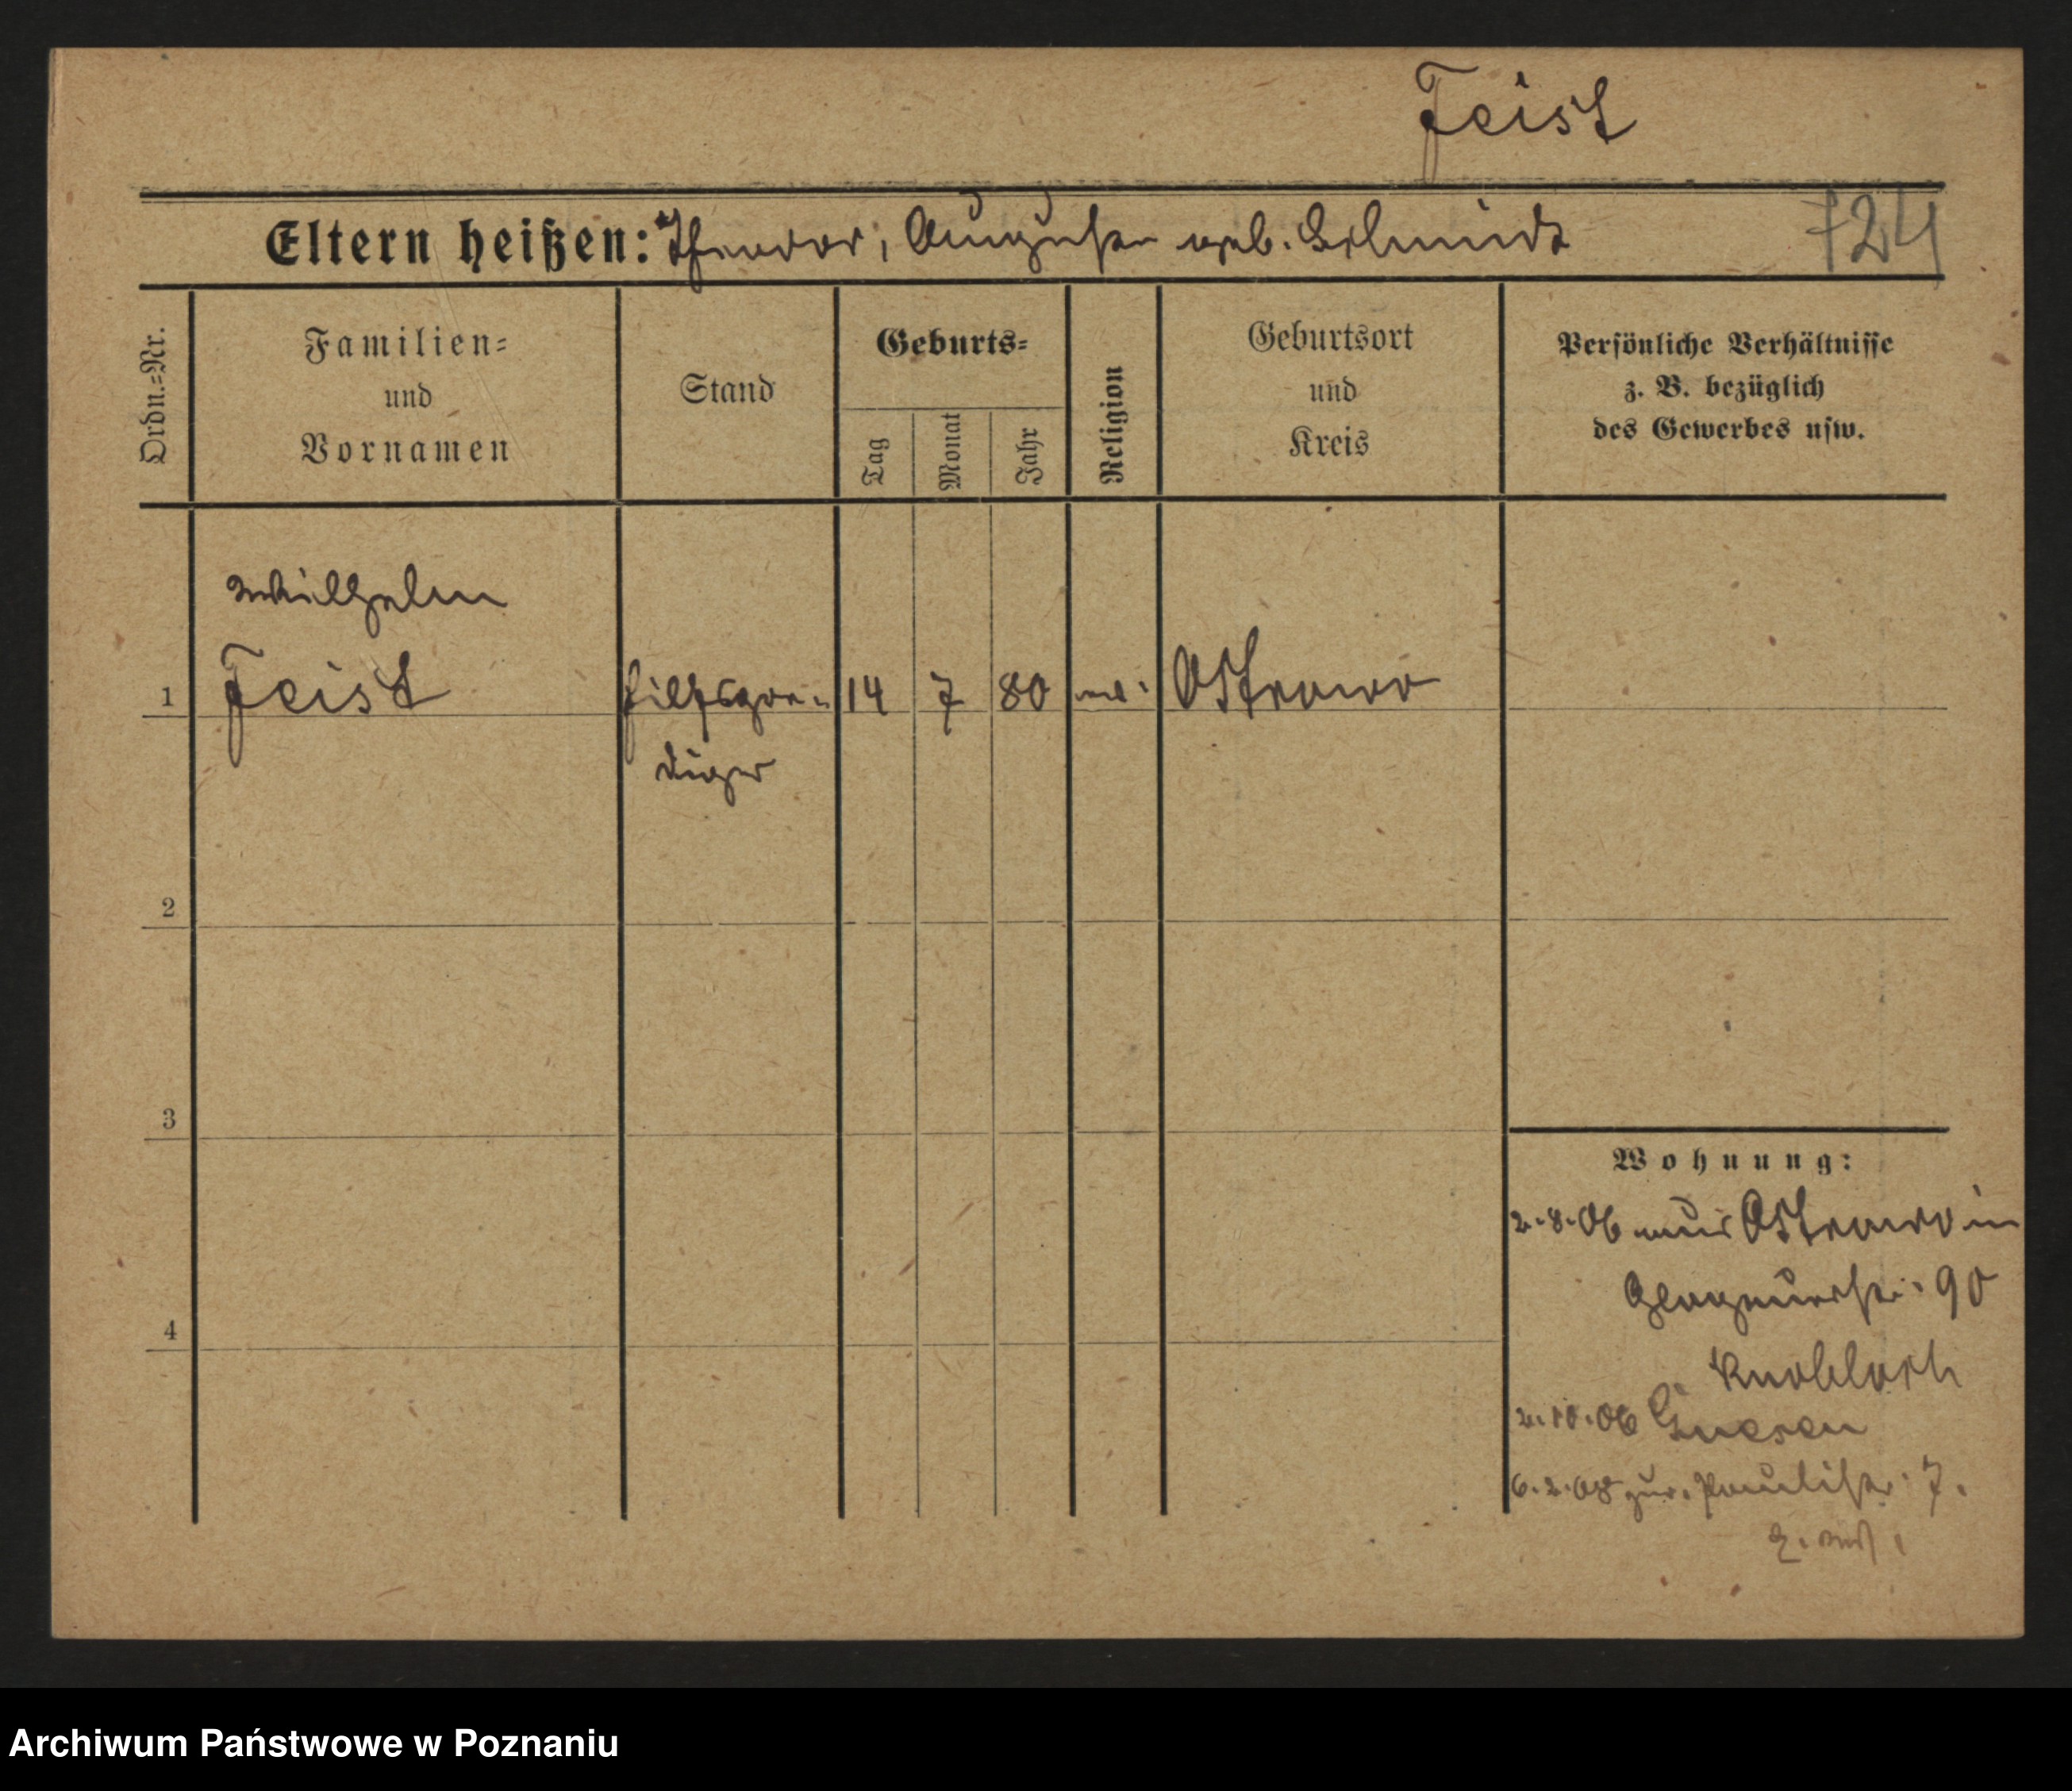 Feist
Eltern heißen: Theodor, Auguste geb. Schmidt
724
Ordn.=Nr.
Familien=
und
Vornamen
Stand
Geburts=
Tag
Monat
Jahr
Religion
Geburtsort
und
Kreis
Persönliche Verhältnisse
z. B. bezüglich
des Gewerbes usw.
Wilhelm
1 Feist Hilfspre- 14 7 80 ev. Ostrowo
diger
2
3
4
Wohnung:
2.8.06 aus Ostrowo in
Glogauerstr. 90
Knobloch
2.10.06 Gnesen
6.2.08 zur. Paulistr. 7.